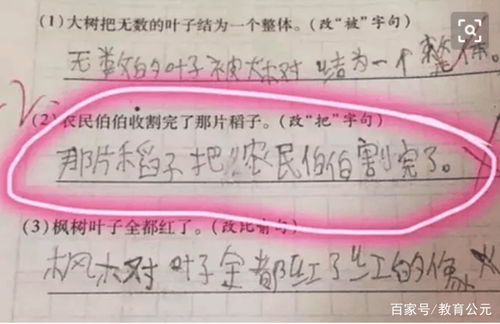 (1)大树把无数的叶子结为一个整体。(改“被”字句)
无数的叶子被大树结为一个整体。
(2)农民伯伯收割完了那片稻子。(改“把”字句)
那片稻子把农民伯伯割完了。
(3)枫树叶子全都红了。(改比喻句)
枫树叶子全都红了红的像
百家号/教育公元